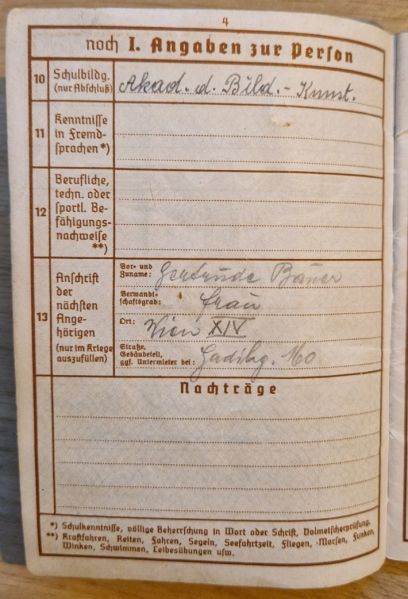 4
noch I. Angaben zur Person
10 Schulbildg. (nur Abschluß) Akad. d. Bild. - Kunst.
11 Kenntnisse in Fremdsprachen *)
12 Berufliche, techn. oder sportl. Befähigungsnachweise **)
13 Anschrift der nächsten Angehörigen (nur im Kriege auszufüllen)
Vor- und Zuname: Gertrude Bauer
Verwandtschaftsgrad: Frau
Ort: Wien XIV
Straße, Gebäudeteil, ggf. Untermieter bei: 160
Nachträge
*) Schulkenntnisse, völlige Beherrschung in Wort oder Schrift, Dolmetscherprüfung.
**) Kraftfahren, Reiten, Fahren, Segeln, Seefahrtzeit, Fliegen, Morsen, Funken,
Winken, Schwimmen, Leibesübungen usw.